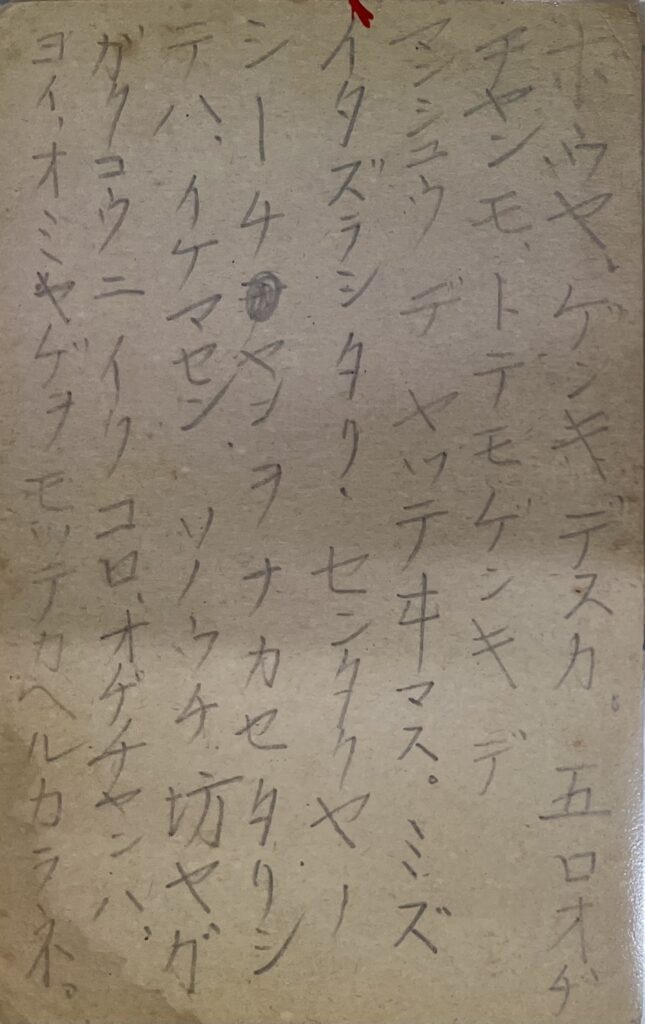 ボウヤ、ゲンキデスカ。五ロオヂ
チヤンモ、トテモゲンキデ
マンシュウデヤツテヰマス。ミズ
イタズラシタリ、センタクヤノ
シーチヤンヲナカセタリシ
テハ、イケマセン、ソノウチ坊ヤガ
ガクコウニイクコロ、オヂチヤンハ、
ヨイ、オミヤゲヲモツテカヘルカラネ。